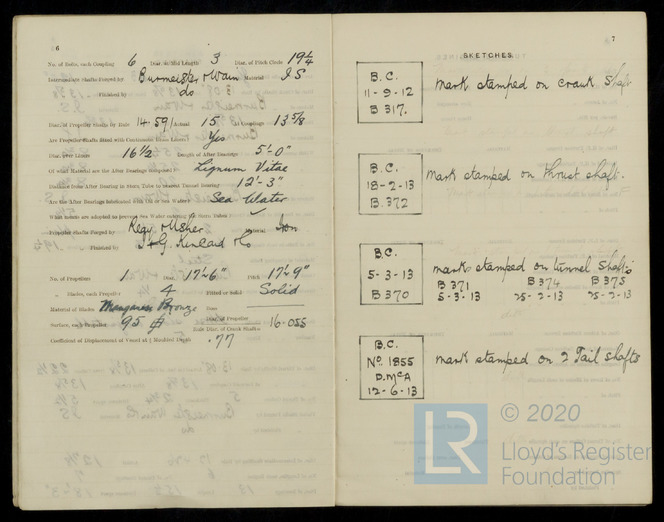 6
No. of Bolts, each Coupling 6 Diar. at Mid Length 3 Diar. of Pitch Circle 19¼
Intermediate Shafts Forged by Burmeister & Wain Material I S
Finished by do
Diar. of Propeller Shafts by Rule 14.591 Actual 15 At Couplings 13 5/8
Are Propeller Shafts fitted with Continuous Brass Liners? Yes
Diar. over Liners 16½ Length of After Bearings 5'-0"
Of what Material are the After Bearings composed? Lignum Vitae
Distance from After Bearing in Stern Tube to nearest Tunnel Bearing 12'-3"
Are the After Bearings lubricated with Oil or Sea Water? Sea Water
What means are adopted to prevent Sea Water entering the Stern Tubes
Propeller Shafts Forged by Material Iron
Finished by J & G. Kincaid & Co
No. of Propellers 1 Diar. 17'-6" Pitch 17'-9"
" Blades, each Propeller 4 Fitted or Solid Solid
Material of Blades Manganese Bronze Boss
Surface, each Propeller 95 ⌗ Diar. of Propeller Rule Diar. of Crank Shaft = 16.055
Coefficient of Displacement of Vessel at ⅘ Moulded Depth .77
7
SKETCHES.
B.C.
11-9-12
B 317.
mark stamped on crank shaft
B.C.
18-2-13
B.372
mark stamped on thrust shaft.
B.C.
5-3-13
B 370
mark stamped on tunnel shafts
B 371 B 374 B 375
5-3-13 25-2-13 25-2-13
B.C.
No. 1855
D.McA
12-6-13
mark stamped on 2 Tail shafts
LR
© 2020
Lloyd's Register
Foundation